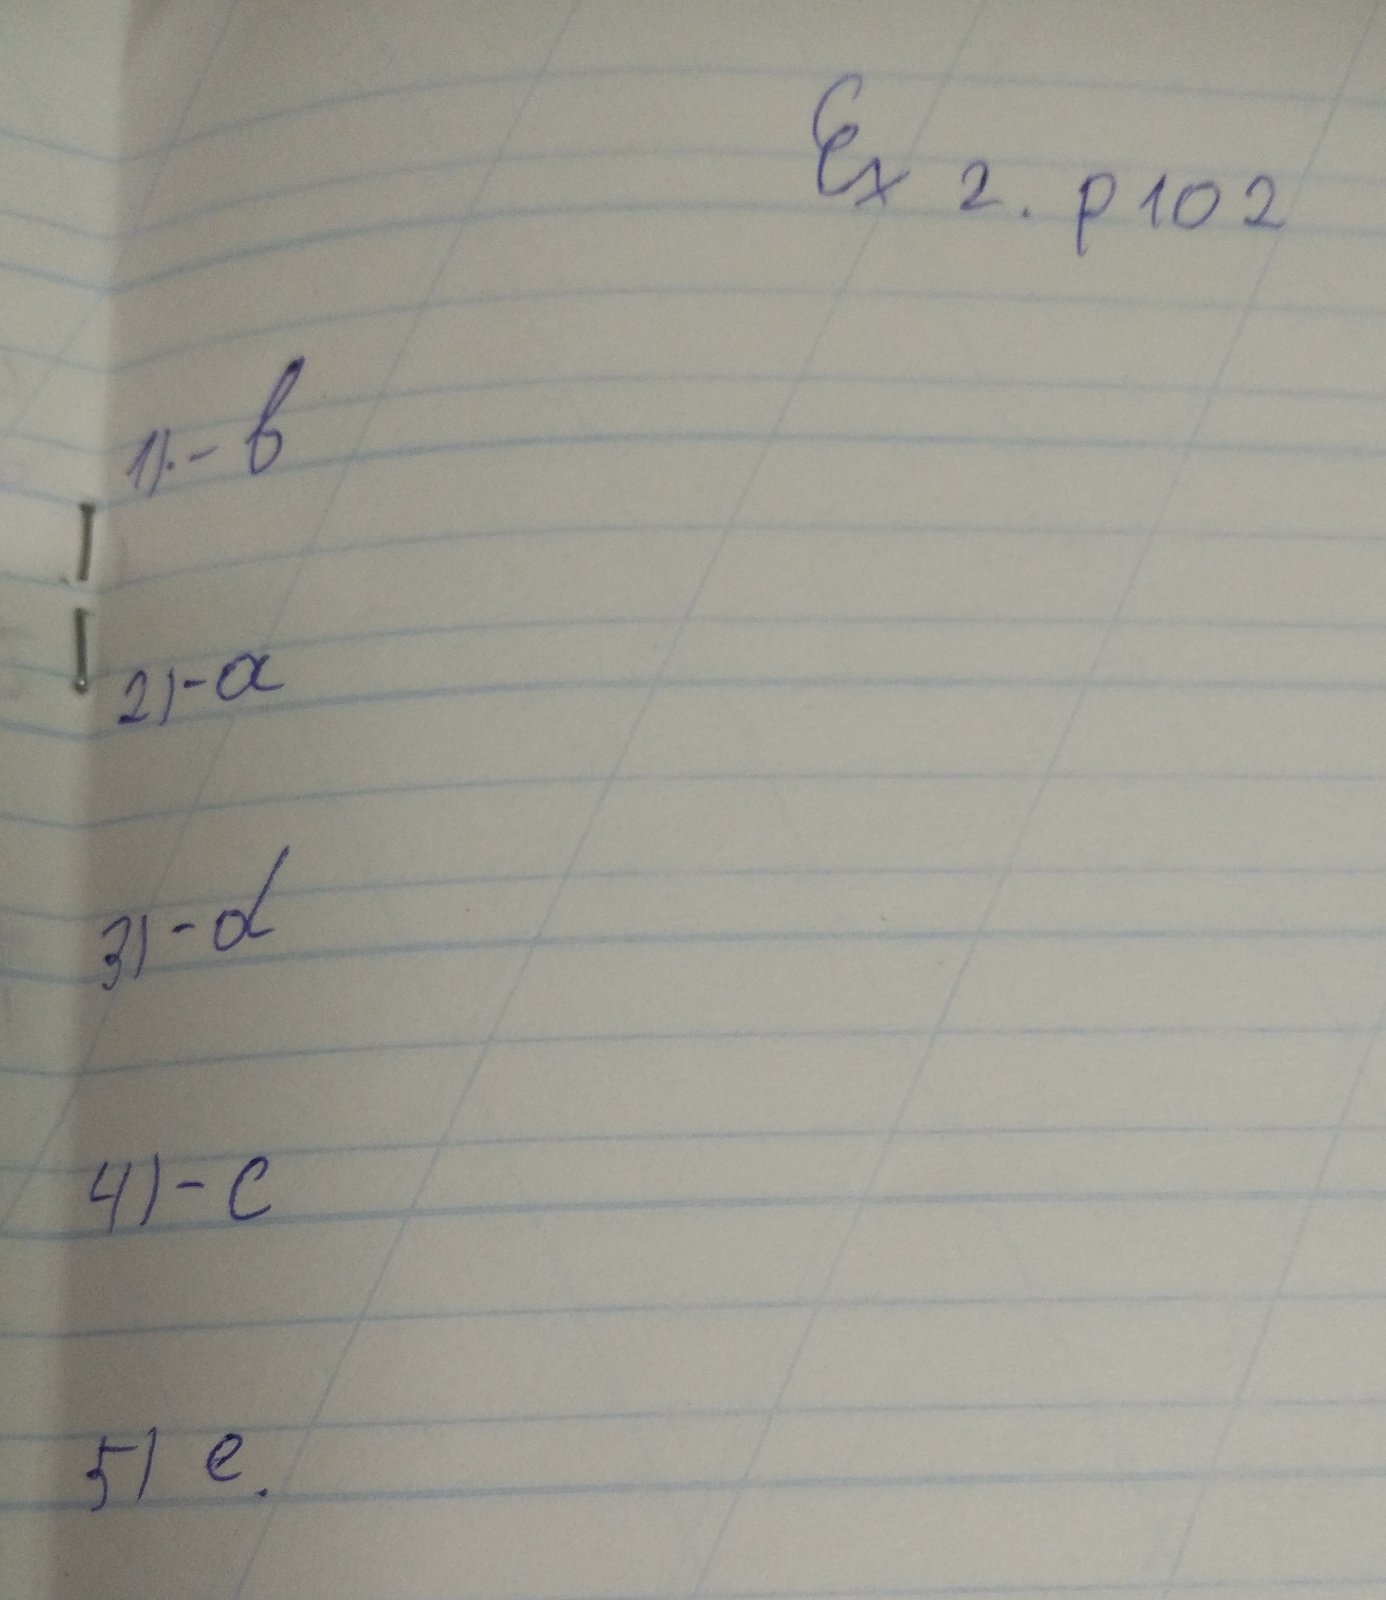 Ex 2. p 102
1).- b
2) - a
3) - d
4) - c
5) e.